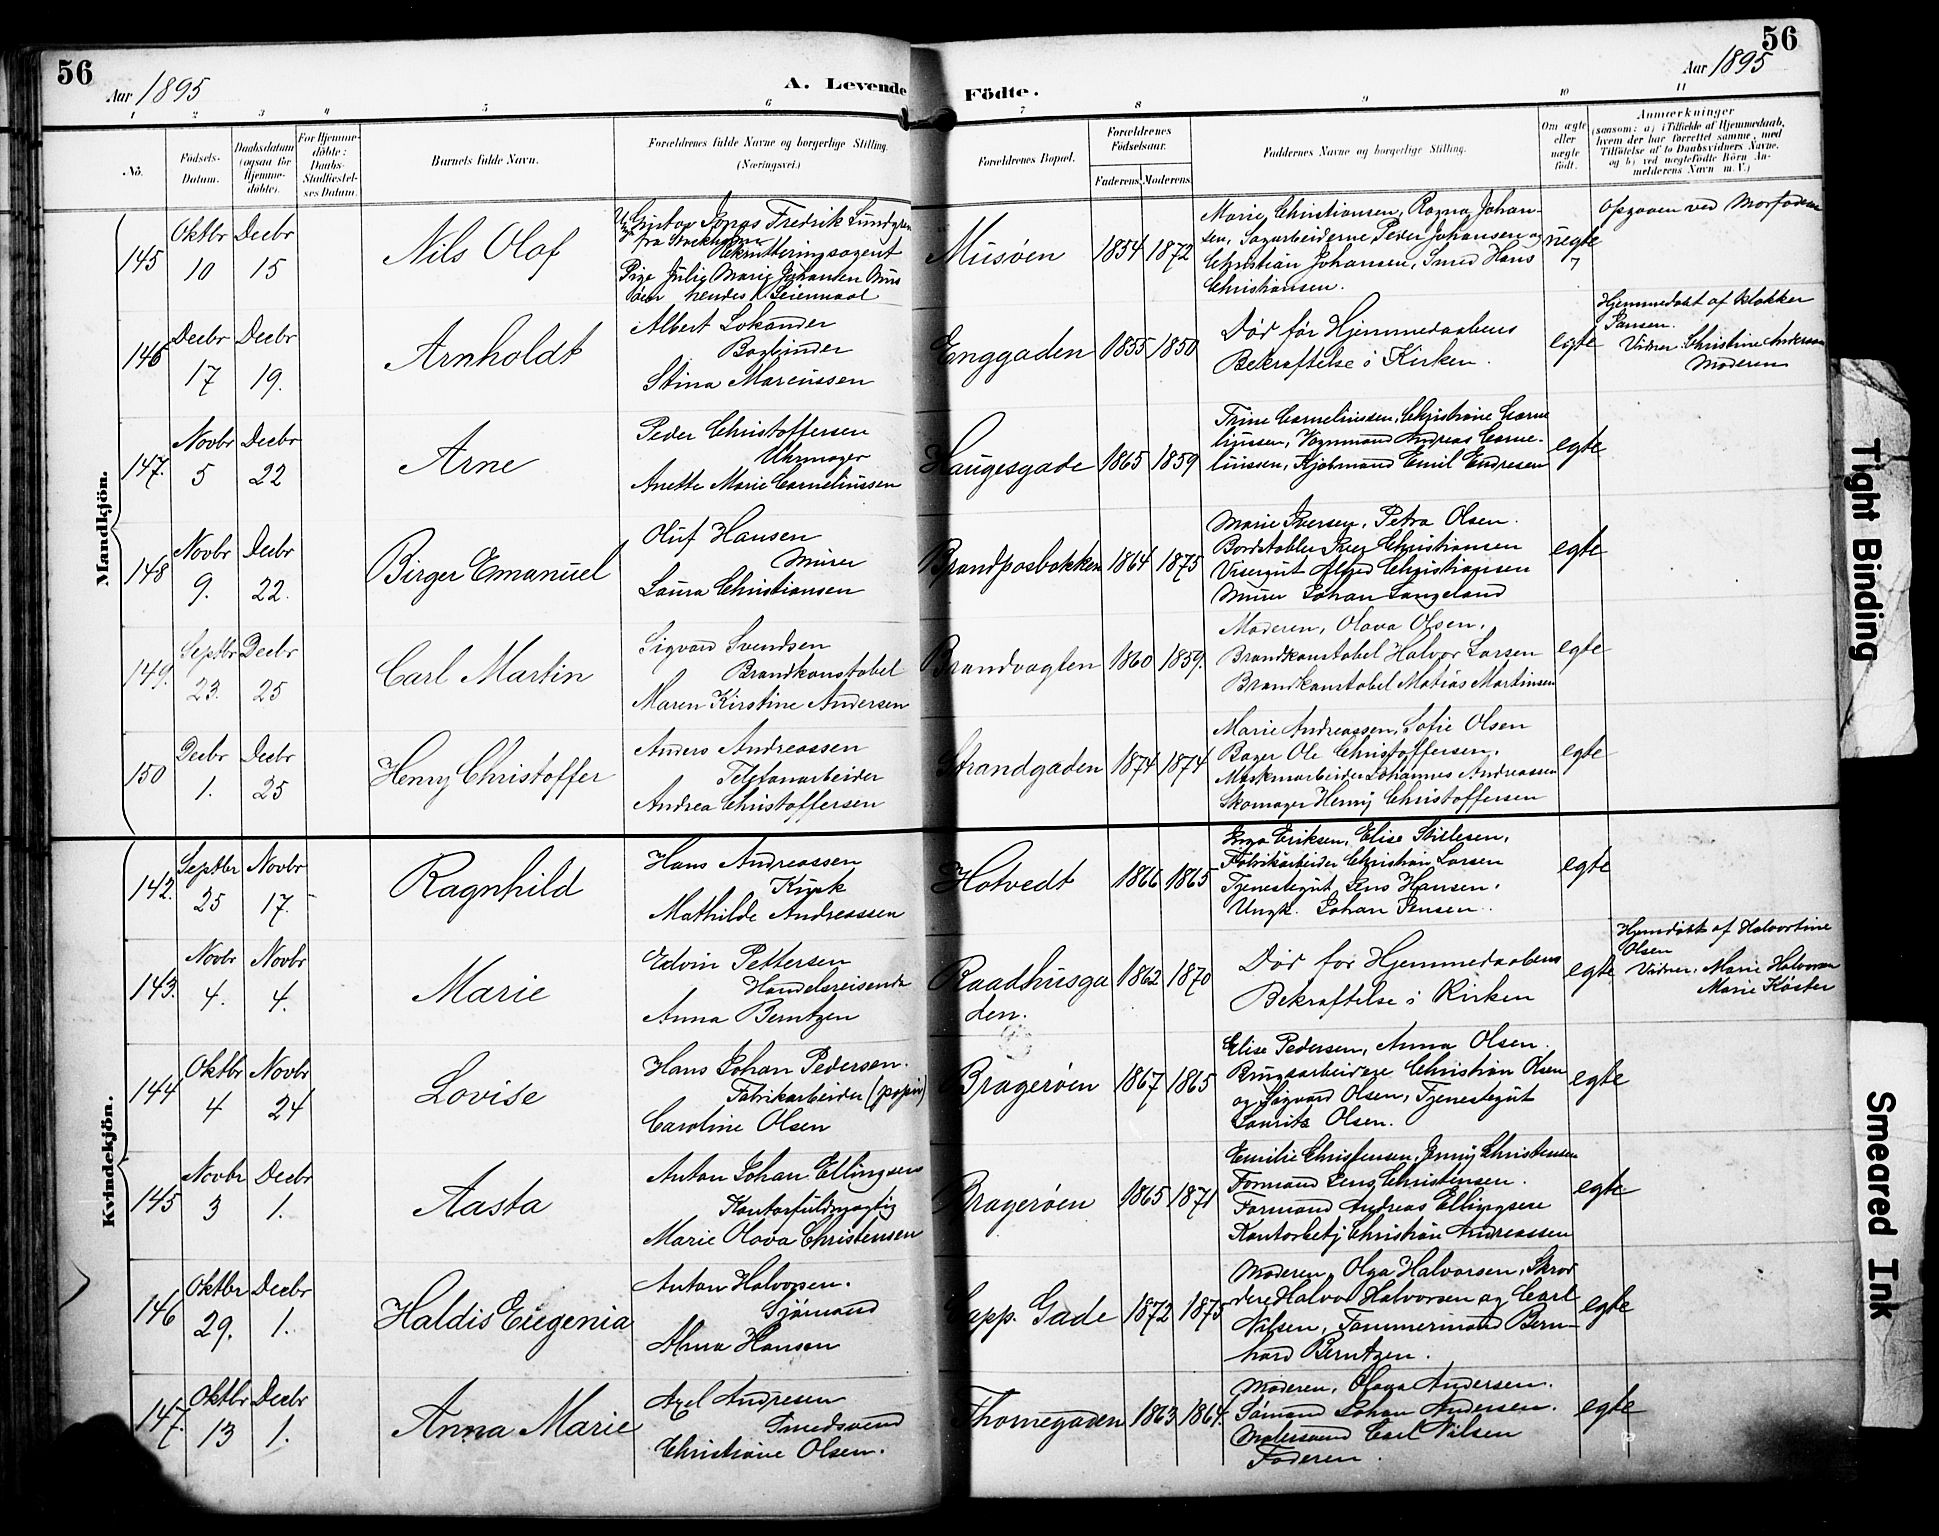 56
Aar 1895
A. Levende Födte.
Aar 1895
56
1 2 3 4 5 6 7 8 9 10 11
No.
Födsels-
Datum.
Daabsdatum
(ogsaa for
Hjemme-
döbte).
For Hjemme-
döbte:
Daabs-
Stadfæstel-
ses Datum.
Barnets fulde Navn.
Forældrenes fulde Navne og borgerlige Stilling.
(Næringsvei.)
Forældrenes Bopæl.
Forældrenes
Födselsaar.
Faderens. Moderens.
Faddernes Navne og borgerlige Stilling.
Om ægte
eller
uægte
født.
Anmærkninger
(saasom: a) i Tilfælde af Hjemmedaab,
hvem der har forrettet samme, med
Tilföielse af to Daabsvidners Navne,
og b) ved uægtefödte Börn An-
melderens Navn m. V.)
Mandkjön.
145 Oktbr 10 Decbr 15
Nils Olof
Gustav Jonas Fredrik Lundgren
fra Stockholm
Pige Julie Marie Johansen Mus
øen hendes 1 Leiermaal
Musøen 1854 1872
Marie Christiansen, Ragna Johan-
sen, Sagarbeiderne Peder Johansen og
Christian Johansen, Smed Hans
Christiansen.
uegte
Opgaven ved Morfaderen
146 Decbr 17 Decbr 19.
Arnholdt
Albert Lokander
Bogbinder
Stina Marcussen
Enggaden 1855 1850
Død før Hjemmedaabens
Bekræftelse i Kirken.
egte
Hjemmedøbt af Klokker
Jansen.
Vidner Christine Andersen
Moderen
147. Novbr 5 Decbr 22
Arne
Peder Christoffersen
Uhrmager
Anette Marie Corneliussen
Haugesgade 1865 1859
Trine Corneliussen, Christiane Corne
liussen, Vognmand Andreas Corne-
liussen, Kjøbmand Emil Endresen
egte
148 Novbr 9. Decbr 22.
Birger Emanuel
Oluf Hansen
Murer
Laura Christiansen
Brandposbakken 1864 1875
Marie Iversen, Petra Olsen.
Bordstabler Iver Christiansen
Visergut Alfred Christiansen
Murer Johan Langeland
egte
149. Septbr 23. Decbr 25
Carl Martin
Sigvard Svendsen
Brandkonstabel
Maren Kirstine Andersen
Brandvagten 1860 1859.
Moderen, Olava Olsen.
Brandkonstabel Halvor Larsen
Brandkonstabel Matias Martinsen
egte
150 Decbr 1. Decbr 25
Henry Christoffer
Anders Andreassen
Telefonarbeider
Andrea Christoffersen
Strandgaden 1874 1874
Marie Andreassen, Sofie Olsen
Bager Ole Christoffersen,
Maskinarbeider Johannes Andreassen
Skomager Henrij Christoffersen
egte
Kvindekjön.
142. Septbr 25 Novbr 17.
Ragnhild
Hans Andreassen
Kusk
Mathilde Andreassen
Hotvedt 1866 1865
Inga Eriksen, Elise
Fabrikarbeider Christian Larsen
Tjenestegut Jens Hansen.
Ungk. Johan Jensen.
egte
143. Novbr 4. Novbr 4.
Marie
Edvin Pettersen
Handelsreisende
Anna Berntzen
Raadhusga
den. 1862 1870
Død før Hjemmedaabens
Bekræftelse i Kirken
egte
Hjemdøbt af Halvortine
Olsen
Vidner. Marie Halvorsen
Marie Køster
144 Oktbr 4 Novbr 24
Lovise
Hans Johan Pedersen.
Fabrikarbeider (papir)
Caroline Olsen
Bragerøen 1867 1865
Elise Pedersen, Anna Olsen.
Brugsarbeidere Christian Olsen
og Sigvard Olsen, Tjenestegut
Laurits Olsen.
egte
145 Novbr 3 Decbr 1.
Aasta
Anton Johan Ellingsen
Kontorfuldmægtig
Marie Olava Christensen
Bragerøen 1865 1871
Emilie Christensen, Jenny Christensen
Formand Jens Christensen.
Formand Andreas Ellingsen
Kontorbetj Christian Andreassen
egte
146 Oktbr 29. Decbr 1.
Haldis Eugenia
Anton Halvorsen.
Sjømand
Anna Hansen
Capp. Gade 1872 1875
Moderen, Olga Halvorsen, Skræd
dere Halvor Halvorsen og Carl
Nilsen, Tømmermand Bern-
hard Berntzen.
egte
147. Oktbr 13 Decbr 1.
Anna Marie
Axel Andresen
Smedsvend
Christiane Olsen.
Thornegaden 1863 1864.
Moderen, Olava Andersen.
Sømand Johan Andersen.
Malersvend Carl Nilsen
Faderen.
egte
Tight Binding
Smeared Ink